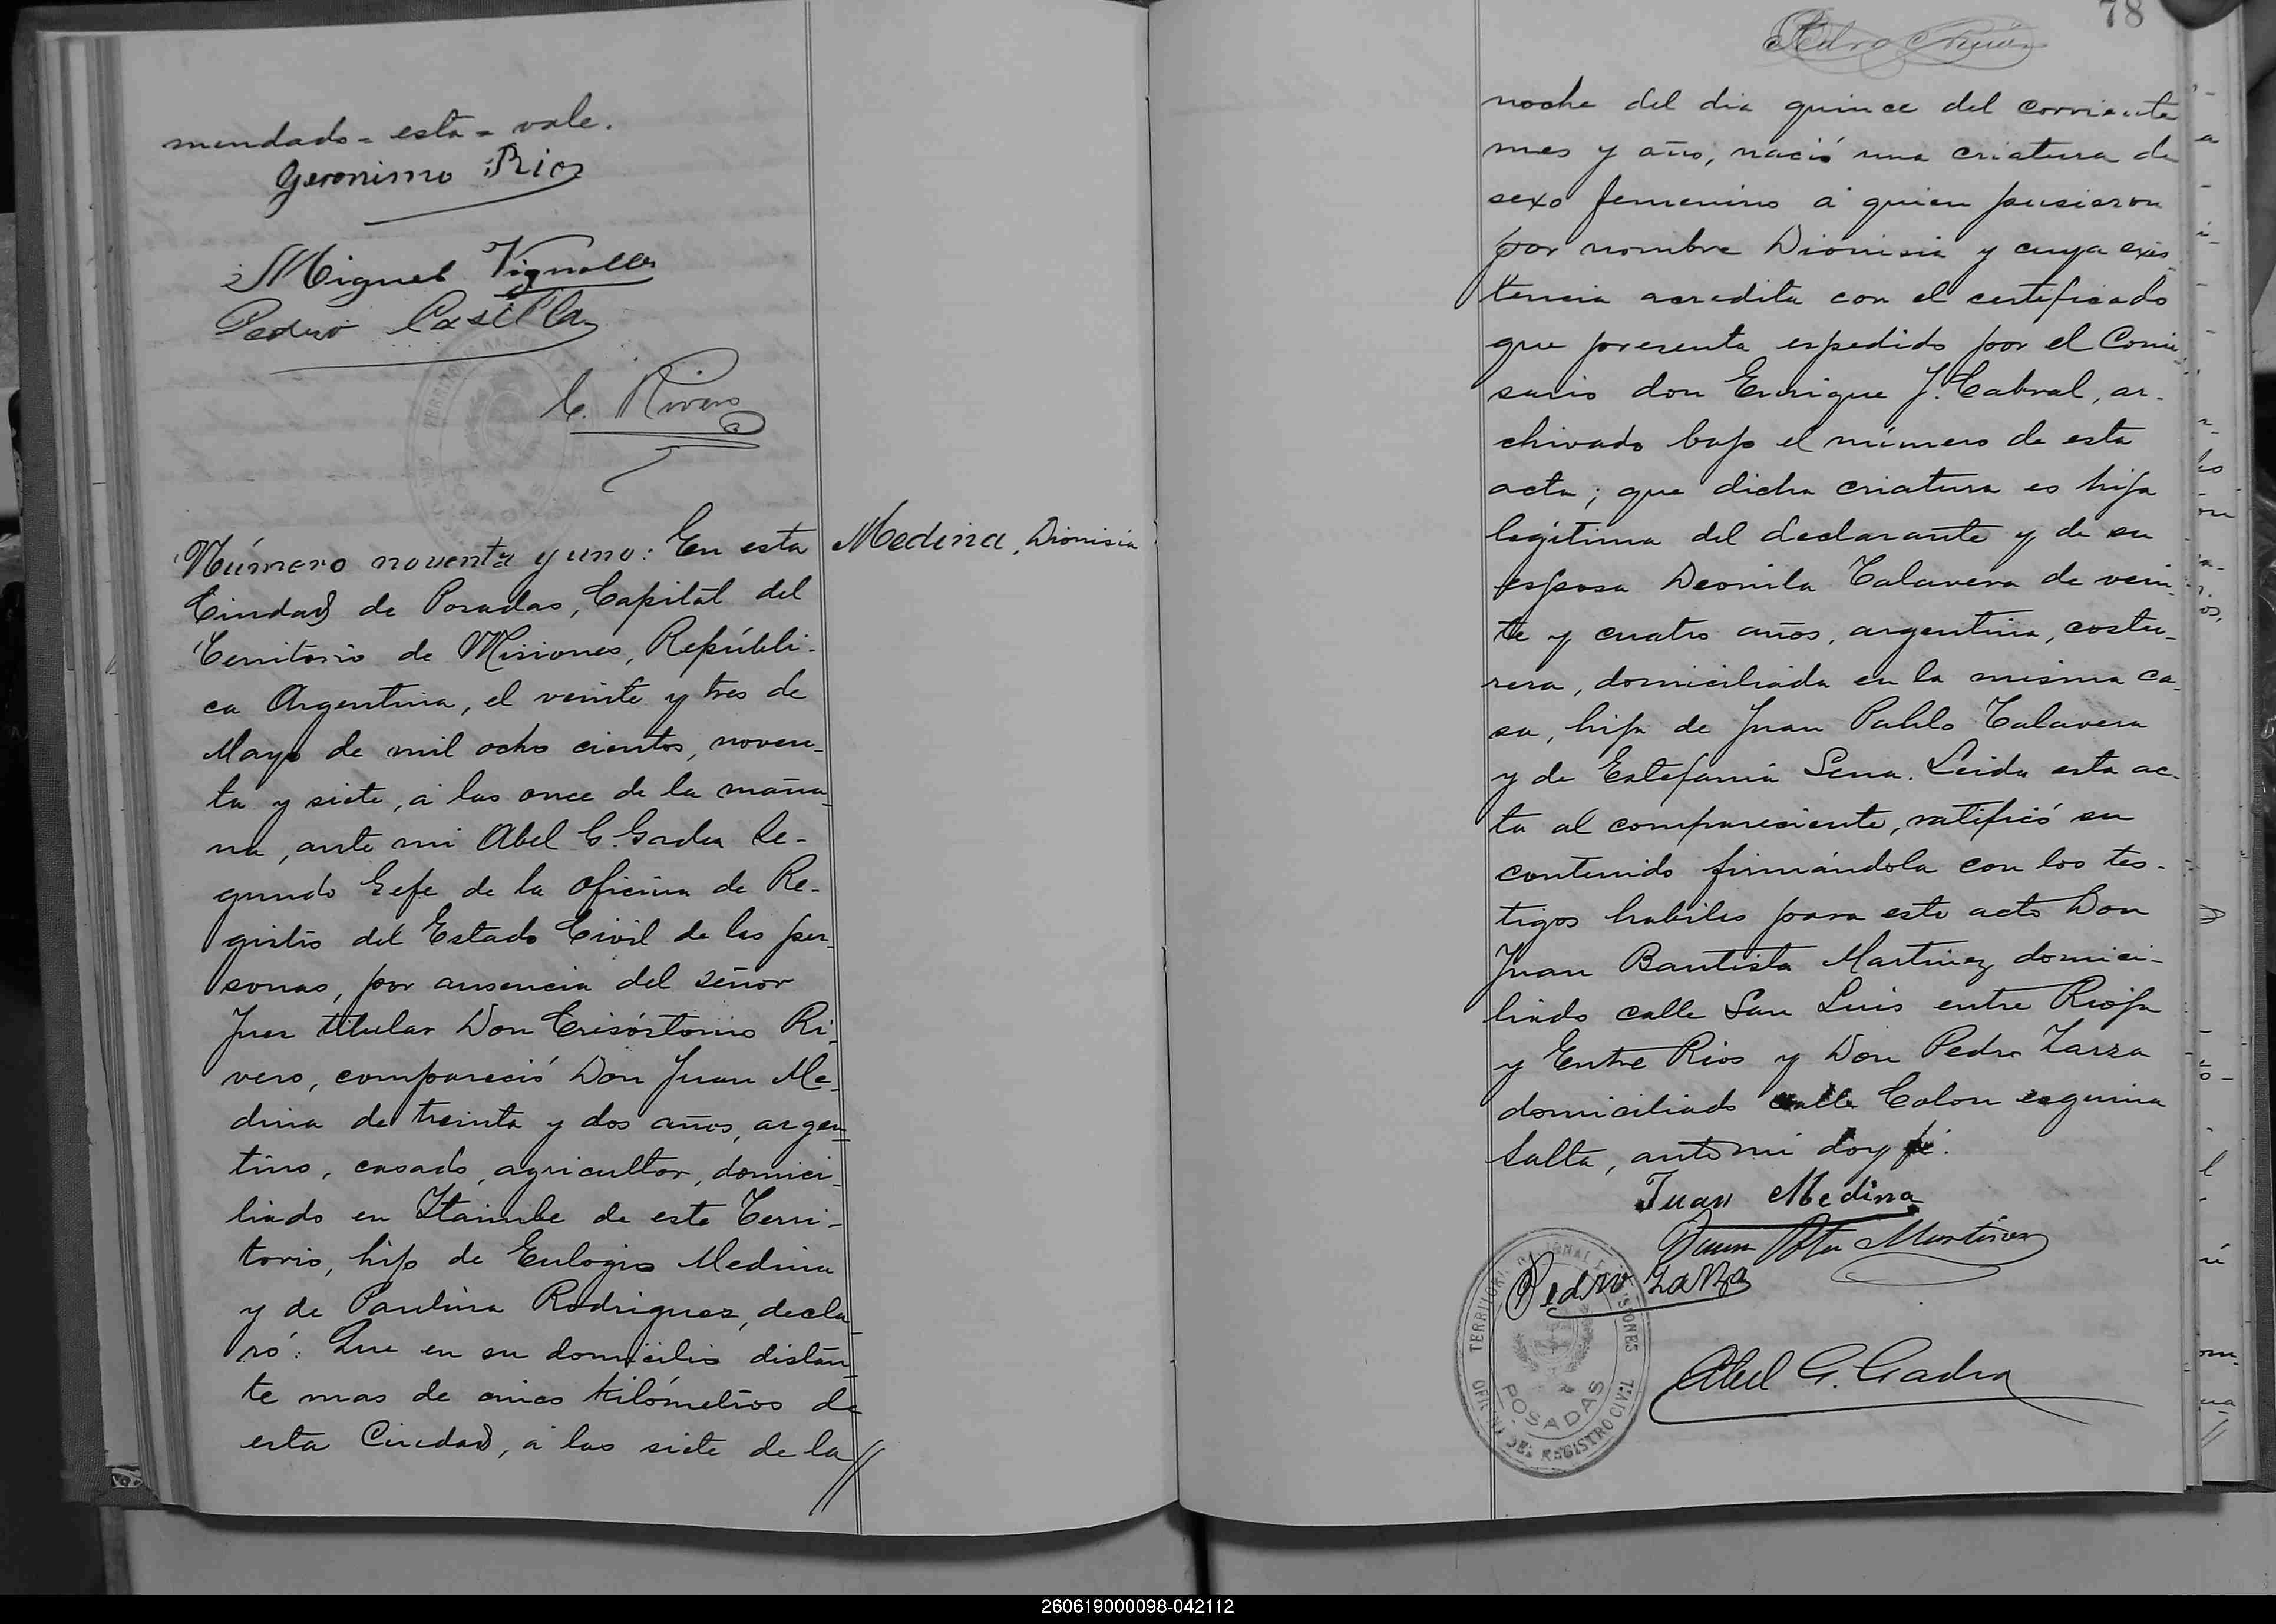 mendado = esta = vale.
Geronimo Rios
Miguel Vignolles
Pedro Casilla
C. Rivero
Número noventa y uno: En esta
Medina, Dionisia
Ciudad de Posadas, Capital del
Territorio de Misiones, Repúbli-
ca Argentina, el veinte y tres de
Mayo de mil ocho cientos, noven-
ta y siete, á las once de la maña-
na, ante mi Abel G. Gadea Se-
gundo Gefe de la Oficina de Re-
gistro del Estado Civil de las per-
sonas, por ausencia del Señor
Juez titular Don Crisóstomo Ri-
vero, compareció Don Juan Me-
dina de treinta y dos años, argen-
tino, casado, agricultor, domici-
liado en Itaimbe de este Terri-
torio, hijo de Eulogio Medina
y de Paulina Rodriguez, decla-
ró: Que en su domicilio distan-
te mas de cinco kilómetros de
esta Ciudad, á las siete de la //
78
Pedro
noche del dia quince del corriente
mes y año, nació una criatura de
sexo femenino á quien pusieron
por nombre Dionisia y cuya exis-
tencia acredita con el certificado
que presenta espedido por el Comi-
sario don Enrique J. Cabral, ar-
chivado bajo el número de esta
acta; que dicha criatura es hija
legítima del declarante y de su
esposa Deonila Talavera de vein-
te y cuatro años, argentina, costu-
rera, domiciliada en la misma ca-
sa, hija de Juan Pablo Talavera
y de Estefania Sena. Leida esta ac-
ta al compareciente, ratificó su
contenido firmándola con los tes-
tigos habiles para este acto Don
Juan Bautista Martinez domici-
liado calle San Luis entre Rioja
y Entre Rios y Don Pedro Zarza
domiciliado calle Colon esquina
Salta, ante mi doy fé.
Juan Medina
Juan Bta Martinez
Pedro Zarza
Abel G. Gadea
TERRITORIO NACIONAL DE MISIONES
POSADAS
OFICINA DEL REGISTRO CIVIL
260619000098-042112